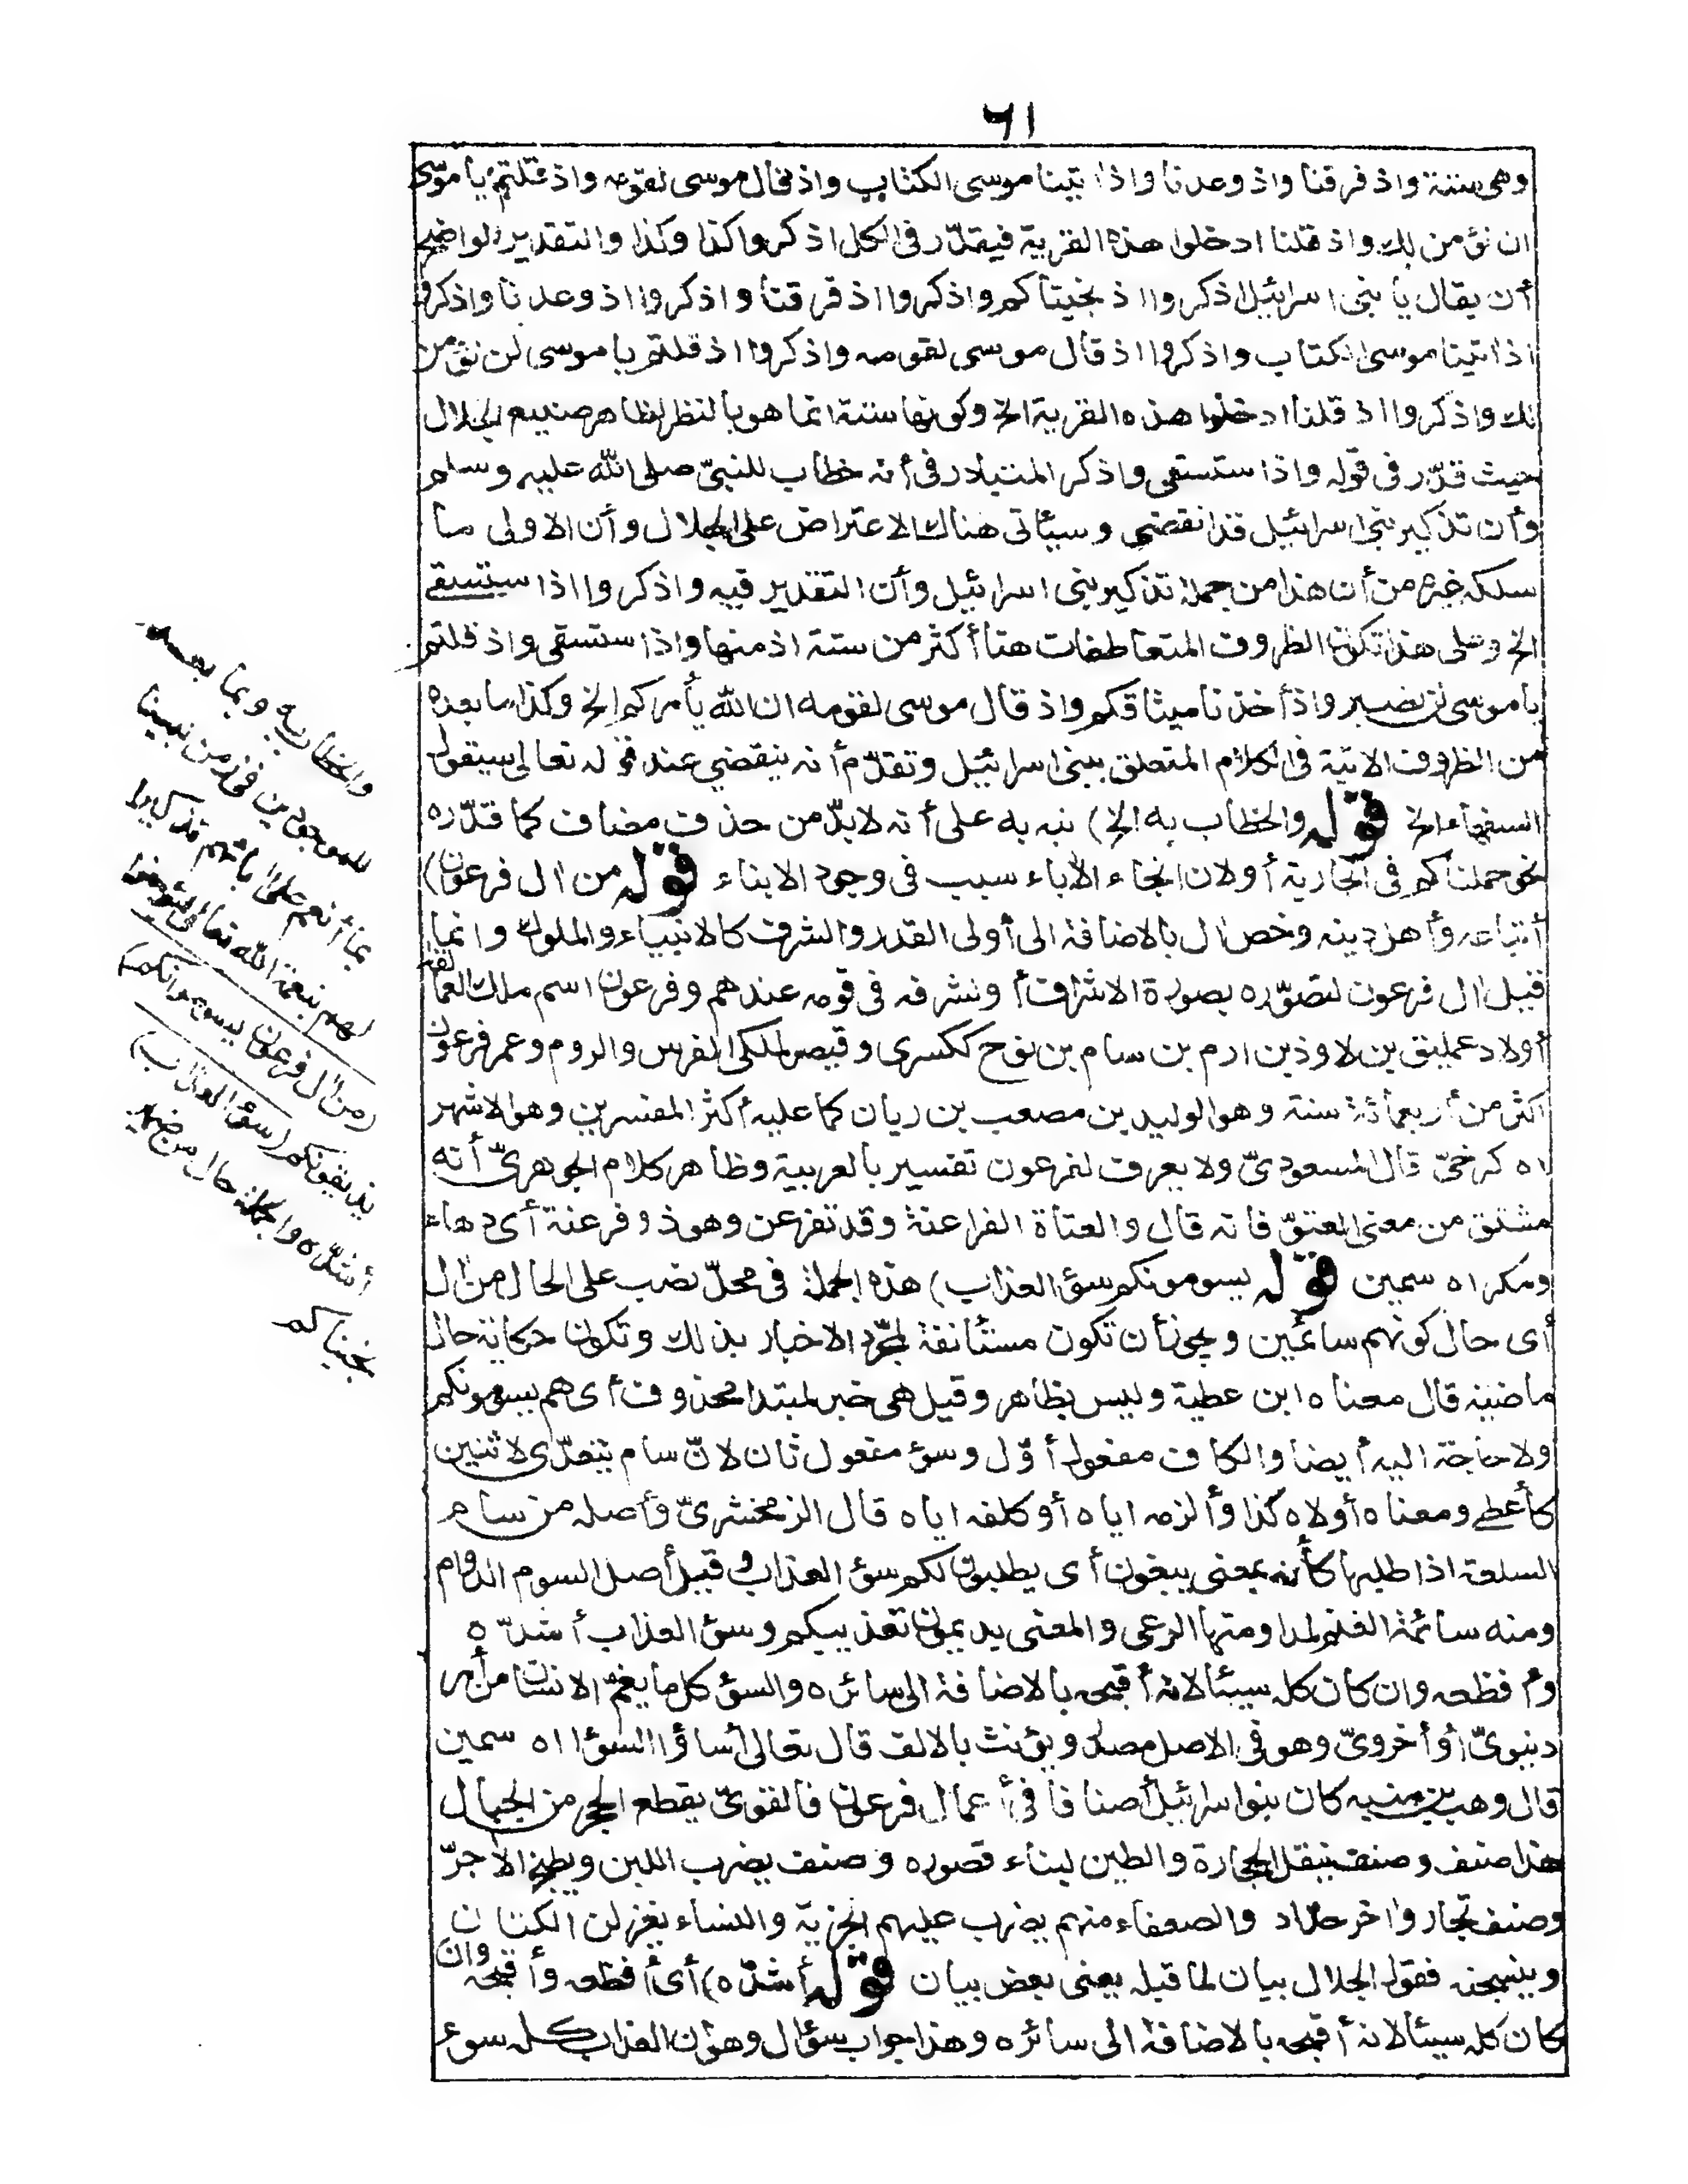 ٦١
وهى ستة واذ فرقنا واذ وعدنا واذ اتينا موسى الكتاب واذ قال موسى لقومه واذ قلتم يا موسى
لن نؤمن لك واذ قلنا ادخلوا هذه القرية فيقدّر فى الكل اذكروا كذا وكذا والتقدير الواضح
أن يقال يا بنى اسرائيل اذكروا اذ نجيناكم واذكروا اذ فرقنا واذكروا اذ وعدنا واذكروا
اذ اتينا موسى الكتاب واذكروا اذ قال موسى لقومه واذكروا اذ قلتم يا موسى لن نؤمن
لك واذكروا اذ قلنا ادخلوا هذه القرية الخ وكونها ستة انما هو بالنظر لظاهر صنيع الجلال
حيث قدّر فى قوله واذ استسقى واذكر المتبادر فى أنه خطاب للنبىّ صلى الله عليه وسلم
وأن تذكير بنى اسرائيل قد انقضى وسيأتى هناك الاعتراض على الجلال وأن الاولى ما
سلكه غيره من أن هذا من جملة تذكير بنى اسرائيل وأن التقدير فيه واذكروا اذ استسقى
الخ وعلى هذا تكون الظروف المتعاطفات هنا أكثر من ستة اذ منها واذ استسقى واذ قلتم
يا موسى لن نصبر واذ أخذنا ميثاقكم واذ قال موسى لقومه ان الله يأمركم الخ وكذا ما بعده
من الظروف الاتية فى الكلام المتعلق ببنى اسرائيل وتقدّم أنه ينقضي عند قوله تعالى سيقول
السفهاء الخ قوله والخطاب به الخ) نبه به على أنه لا بدّ من حذف مضاف كما قدّره
نحو حملناكم فى الجارية أو لان انجاء الأباء سبب فى وجود الابناء قوله من ال فرعون)
أتباعه وأهل دينه وخص ال بالاضافة الى أولى القدر والشرف كالانبياء والملوك وانما
قيل ال فرعون لتصوّره بصورة الاشراف أو لشرفه فى قومه عندهم وفرعون اسم ملك العمالقة
أولاد عمليق بن لاوذ بن ارم بن سام بن نوح ككسرى وقيصر لملكى الفرس والروم وعمر فرعون
اكثر من أربعمائة سنة وهو الوليد بن مصعب بن ريان كما عليه أكثر المفسرين وهو الاشهر
اه كرخىّ قال المسعودىّ ولا يعرف لفرعون تفسير بالعربية وظاهر كلام الجوهرىّ أنه
مشتق من معنى العتوّ فانه قال والعتاة الفراعنة وقد تفرعن وهو ذو فرعنة أى دهاء
ومكر اه سمين قوله يسومونكم سوء العذاب) هذه الجملة فى محلّ نصب على الحال من ال
أى حال كونهم سائمين ويجوز أن تكون مستأنفة لمجرّد الاخبار بذلك وتكون حكاية حال
ماضية قال معناه ابن عطية وليس بظاهر وقيل هى خبر لمبتدا محذوف أى هم يسومونكم
ولا حاجة اليه أيضا والكاف مفعول أوّل وسوء مفعول ثان لانّ سام يتعدّى لاثنين
كأعطى ومعناه أولاه كذا وألزمه اياه أو كلفه اياه قال الزمخشرىّ وأصله من سام
السلعة اذا طلبها كأنه بمعنى يبغون أى يطلبون لكم سوء العذاب وقيل أصل السوم الدوام
ومنه سائمة الغنم لمداومتها الرعى والمعنى يديمون تعذيبكم وسوء العذاب أشدّه
وأفظعه وان كان كله سيئا لانه أقبحه بالاضافة الى سائره والسوء كل ما يغمّ الانسان من أمر
دنيوىّ أو أخروىّ وهو فى الاصل مصدر ويؤنث بالالف قال تعالى أساؤا السوأى اه سمين
قال وهب بن منبه كان بنو اسرائيل أصنافا فى أعمال فرعون فالقوىّ يقطع الحجر من الجبال
هذا صنف وصنف ينقل الحجارة والطين لبناء قصوره وصنف يضرب اللبن ويطبخ الاجرّ
وصنف نجار واخر حداد والضعفاء منهم يضرب عليهم الجزية والنساء يغزلن الكتان
وينسجنه فقول الجلال بيان لما قبله يعنى بعض بيان قوله أشدّه) أى أفظعه وأقبحه وان
كان كله سيئا لانه أقبحه بالاضافة الى سائره وهذا جواب سؤال وهو أن العذاب كله سوء
والخطاب به وبما بعده
للموجودين فى زمن نبينا
بما أنعم على ابائهم تذكيرا
لهم بنعمة الله تعالى ليؤمنوا
(من ال فرعون يسومونكم)
يذيقونكم (سوء العذاب)
أشدّه والجملة حال من ضمير
نجيناكم